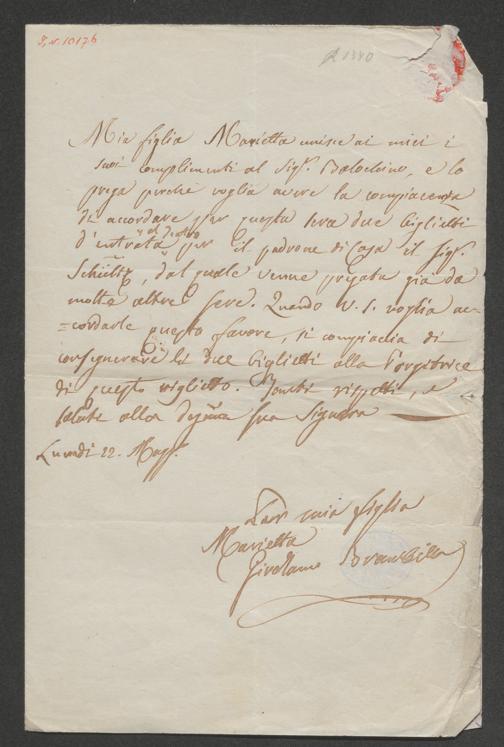 I. N. 10176
1340
Mia figlia Marietta unisce ai miei i
suoi complimenti al Sig.r Balochino, e lo
prega perchè voglia avere la compiacenza
di accordare per questa sera due biglietti
d'entrata al Teatro per il padrone di Casa il Sig.r
Schültz, dal quale venne pregata già da
molte altre sere. Quando V. S. voglia ac=
=cordarle questo favore, si compiacia di
consegnare li due biglietti alla Porgitrice
di questo viglietto. Tanti rispetti, e
salute alla degna sua Signora
Lunedì 22. Magg.
Per mia figlia
Marietta
Girolamo Brambilla